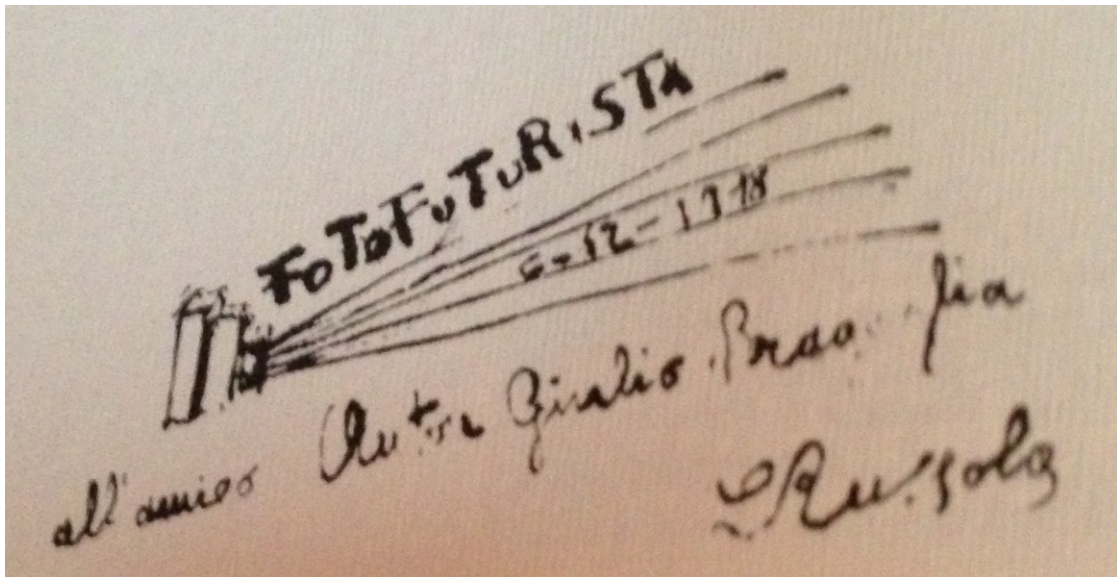 FoToFuTuRiSTA
6-12-1918
all'amico Anton Giulio Bragaglia
LRussolo